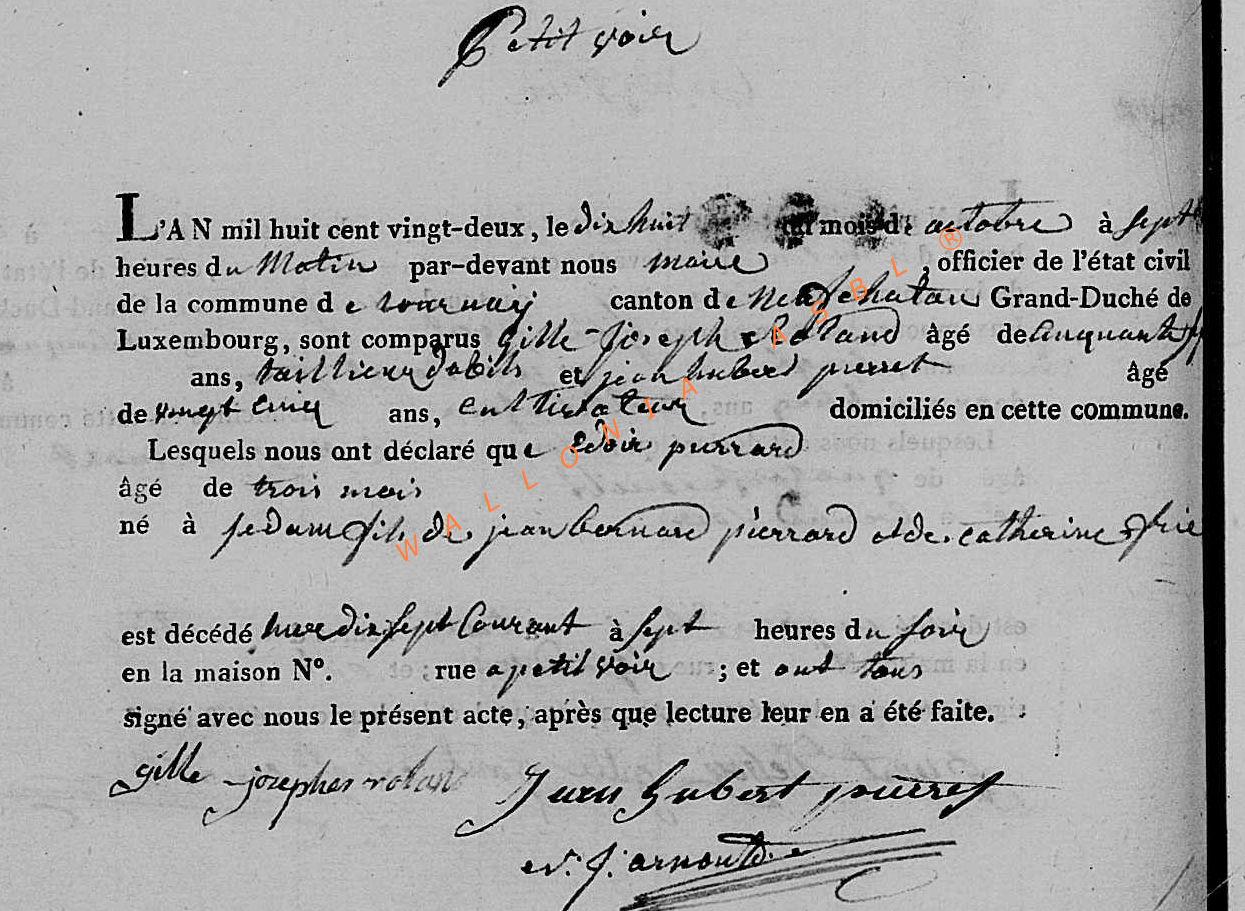 Petit voir
L'AN mil huit cent vingt-deux, le dix huit du mois d' octobre à sept
heures du Matin par-devant nous maire , officier de l'état civil
de la commune de tournay canton de Neufchatau Grand-Duché de
Luxembourg, sont comparus gille joseph Roland âgé de cinquante
ans, taillieur dabits et jean hubert pierret âgé
de vingt cinq ans, cultivateur domiciliés en cette commune.
Lesquels nous ont déclaré que pierrard
âgé de trois mois
né à sedam fils de jean bernard pierrard et de catherine
est décédé hier dix sept Courant à sept heures du soir
en la maison N°. rue a petit voir ; et ont tous
signé avec nous le présent acte, après que lecture leur en a été faite.
gille josephes roland Jean Hubert pierret
arnould
WALLONIA ASBL ®